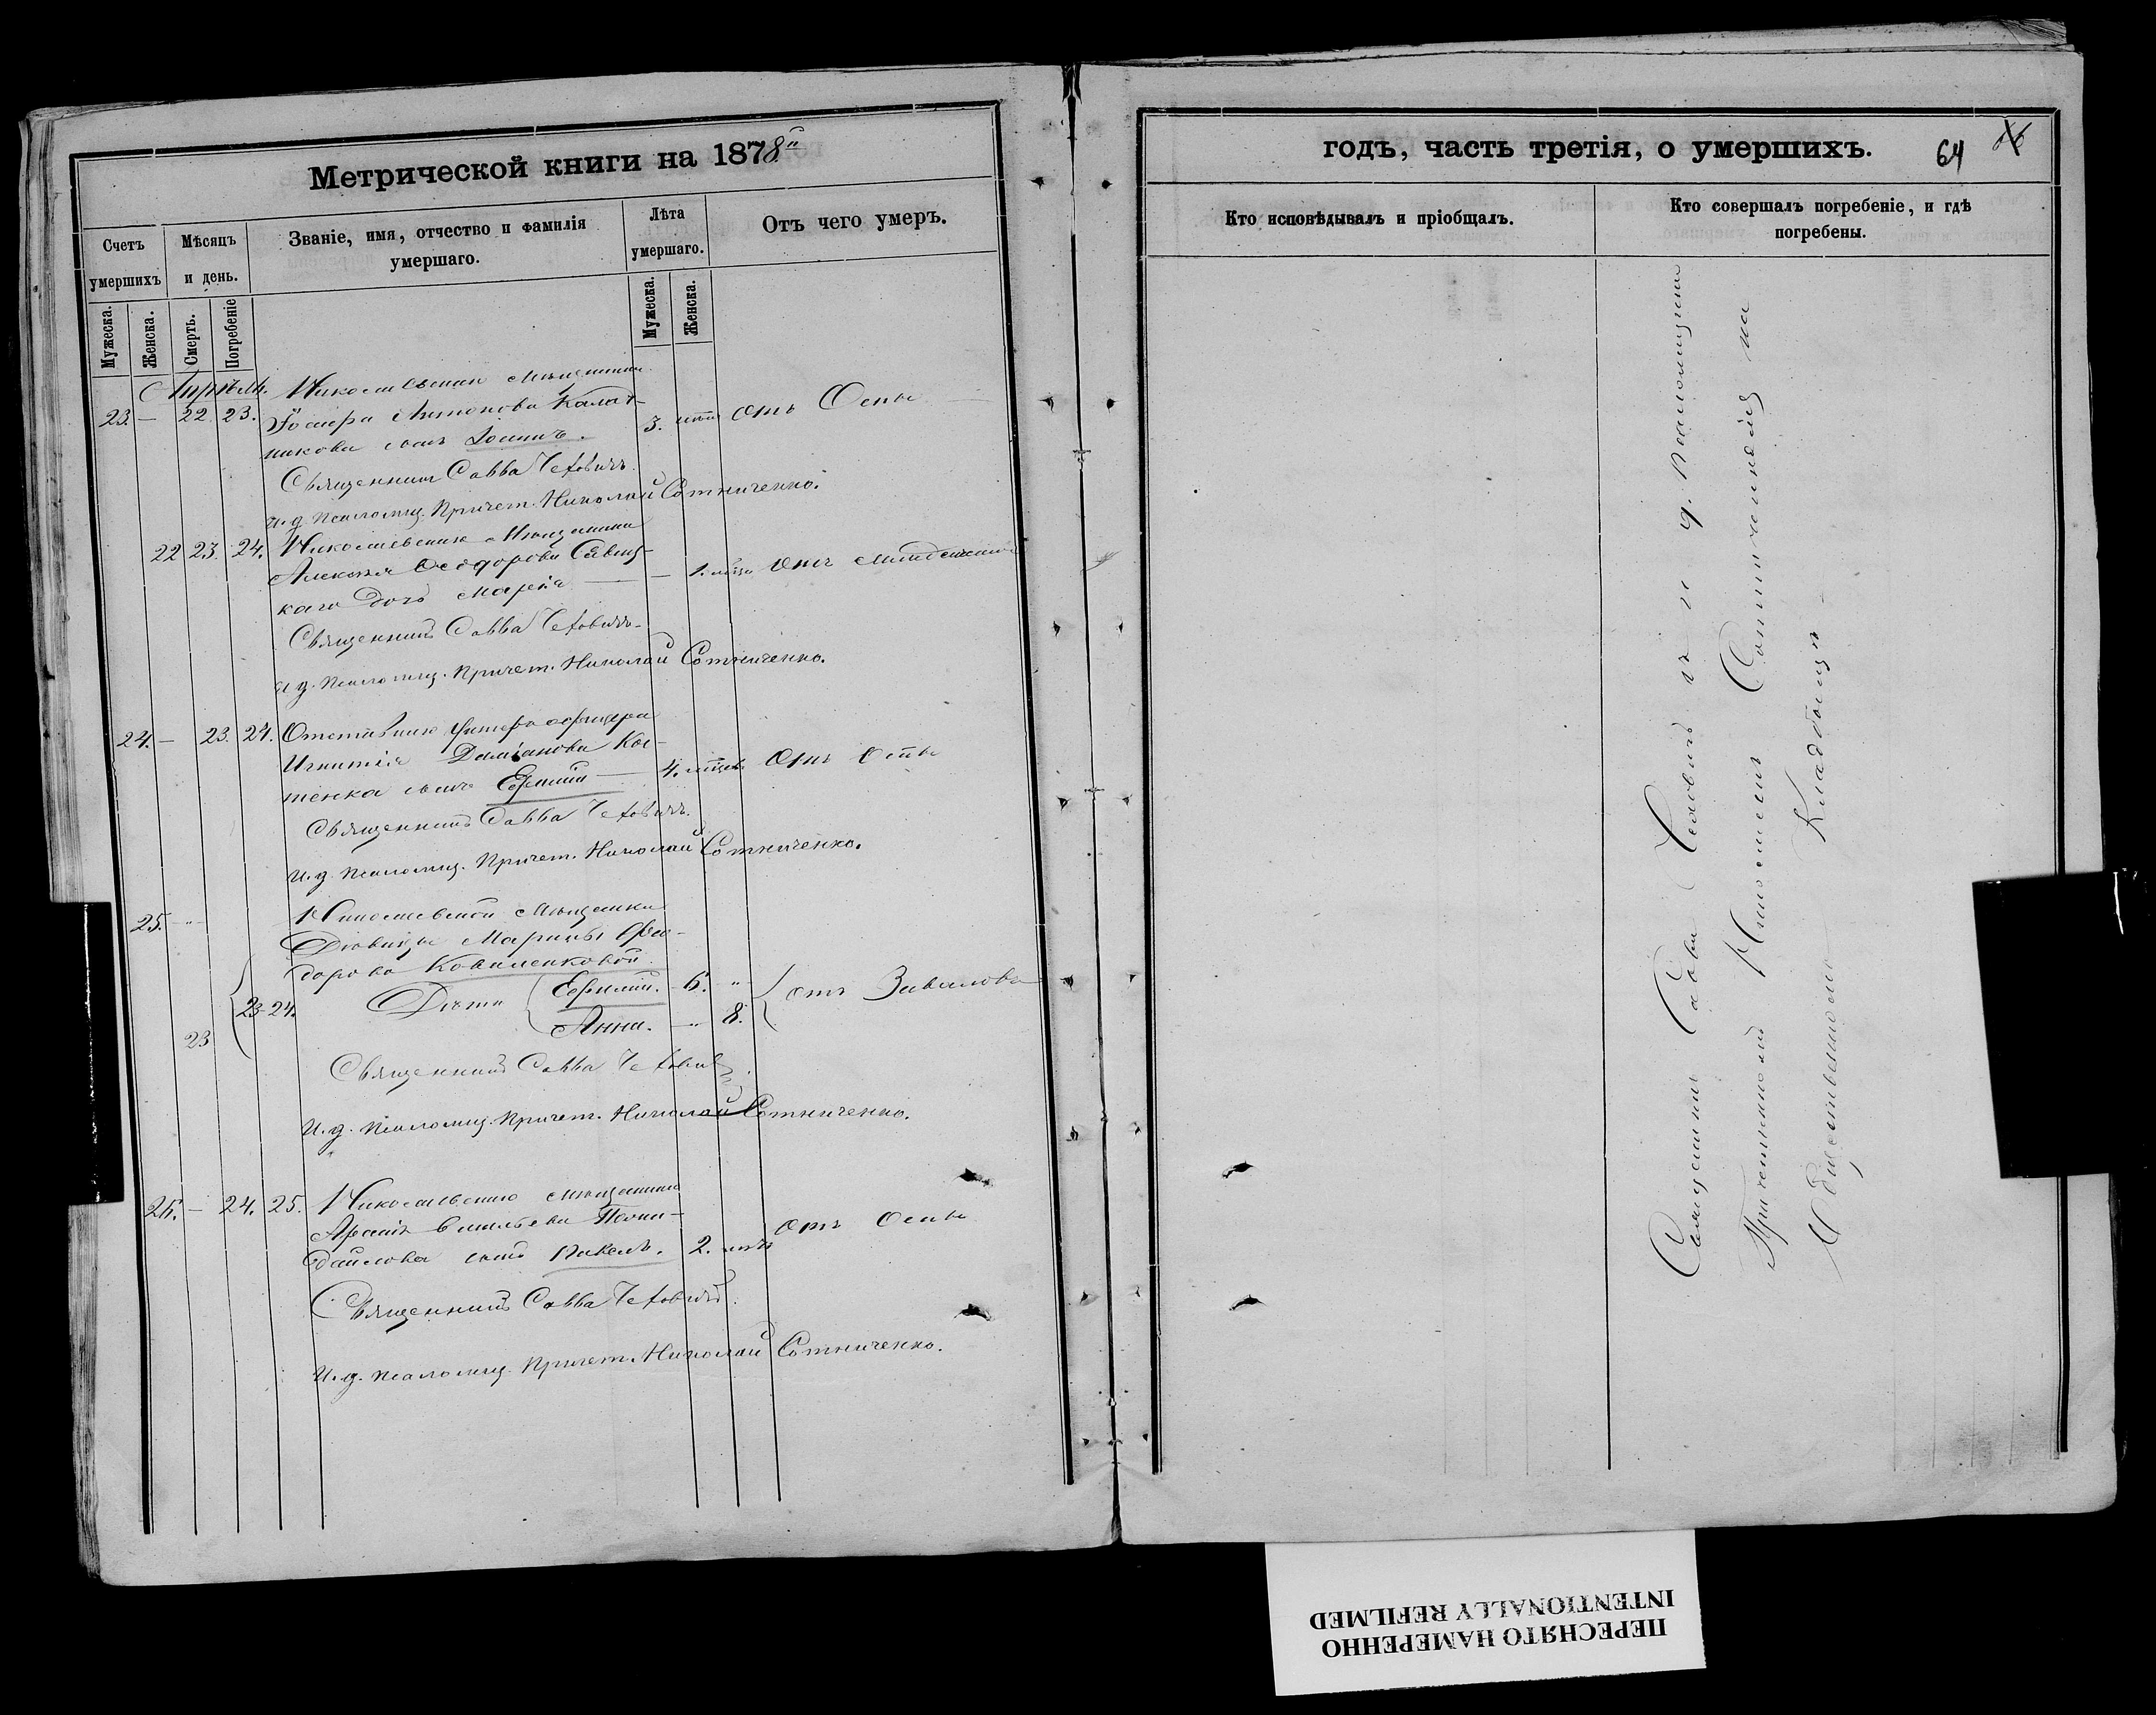 Метрической книги на 1878й
Счетъ умершихъ
Мѣсяцъ и день.
Званіе, имя, отчество и фамилія умершаго.
Лѣта умершаго.
Отъ чего умеръ.
Мужеска.
Женска.
Смерть.
Погребеніе
Мужеска.
Женска.
Апрѣль. Николаевскаго мѣщанина
23. — 22. 23. Антонова Калат-
никова сынъ 3. отъ Оспы
Священникъ Савва Чехович
и. д. псаломщ. Причет. Николай Сотниченко.
22 23. 24. Николаевскаго Мѣщанина
Алексѣя Ѳеодорова Савиц-
каго дочь Марія — — 1. отъ младенческой
Священникъ Савва Чехович
и д. псаломщ. Причет. Николай Сотниченко.
24. — 23. 24. Отставнаго Унтеръ офицера
Игнатія Даміанова Кос-
тенка сынъ Ефимій — 4. отъ Оспы
Священникъ Савва Чехович
и. д. псаломщ. Причет. Николай Сотниченко.
25. Николаевской мѣщанки
Дѣвицы Марины Фео-
дорова Коваленковой
23-24. Дѣти Ефимій. 6.
23 Анна. 8. отъ
Священникъ Савва Чехович
и. д. псаломщ. Причет. Николай Сотниченко.
26. — 24. 25. Николаевскаго мѣщанина
сынъ Павелъ. 2. отъ Оспы
Священникъ Савва Чехович
и. д. псаломщ. Причет. Николай Сотниченко.
годъ, часть третія, о умершихъ.
64
Кто исповѣдывалъ и пріобщалъ.
Кто совершалъ погребеніе, и гдѣ погребены.
Священникъ Савва Чеховичъ съ и. д. Псаломщика
Причетникомъ Николаемъ Сотниченкомъ на
Общественномъ Кладбищѣ
ПЕРЕСНЯТО НАМЕРЕННО
INTENTIONALLY REFILMED